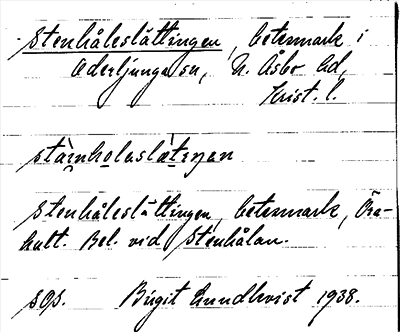 Stenhåleslättingen, betesmark i
Oderljunga sn, N. Åsbo hd,
Krist. l.
stàinholaslǽtiŋən
Stenhåleslättingen, betesmark, Öra-
hult. Bel. vid Stenhålan.
sgs. Birgit Lundkvist 1938.